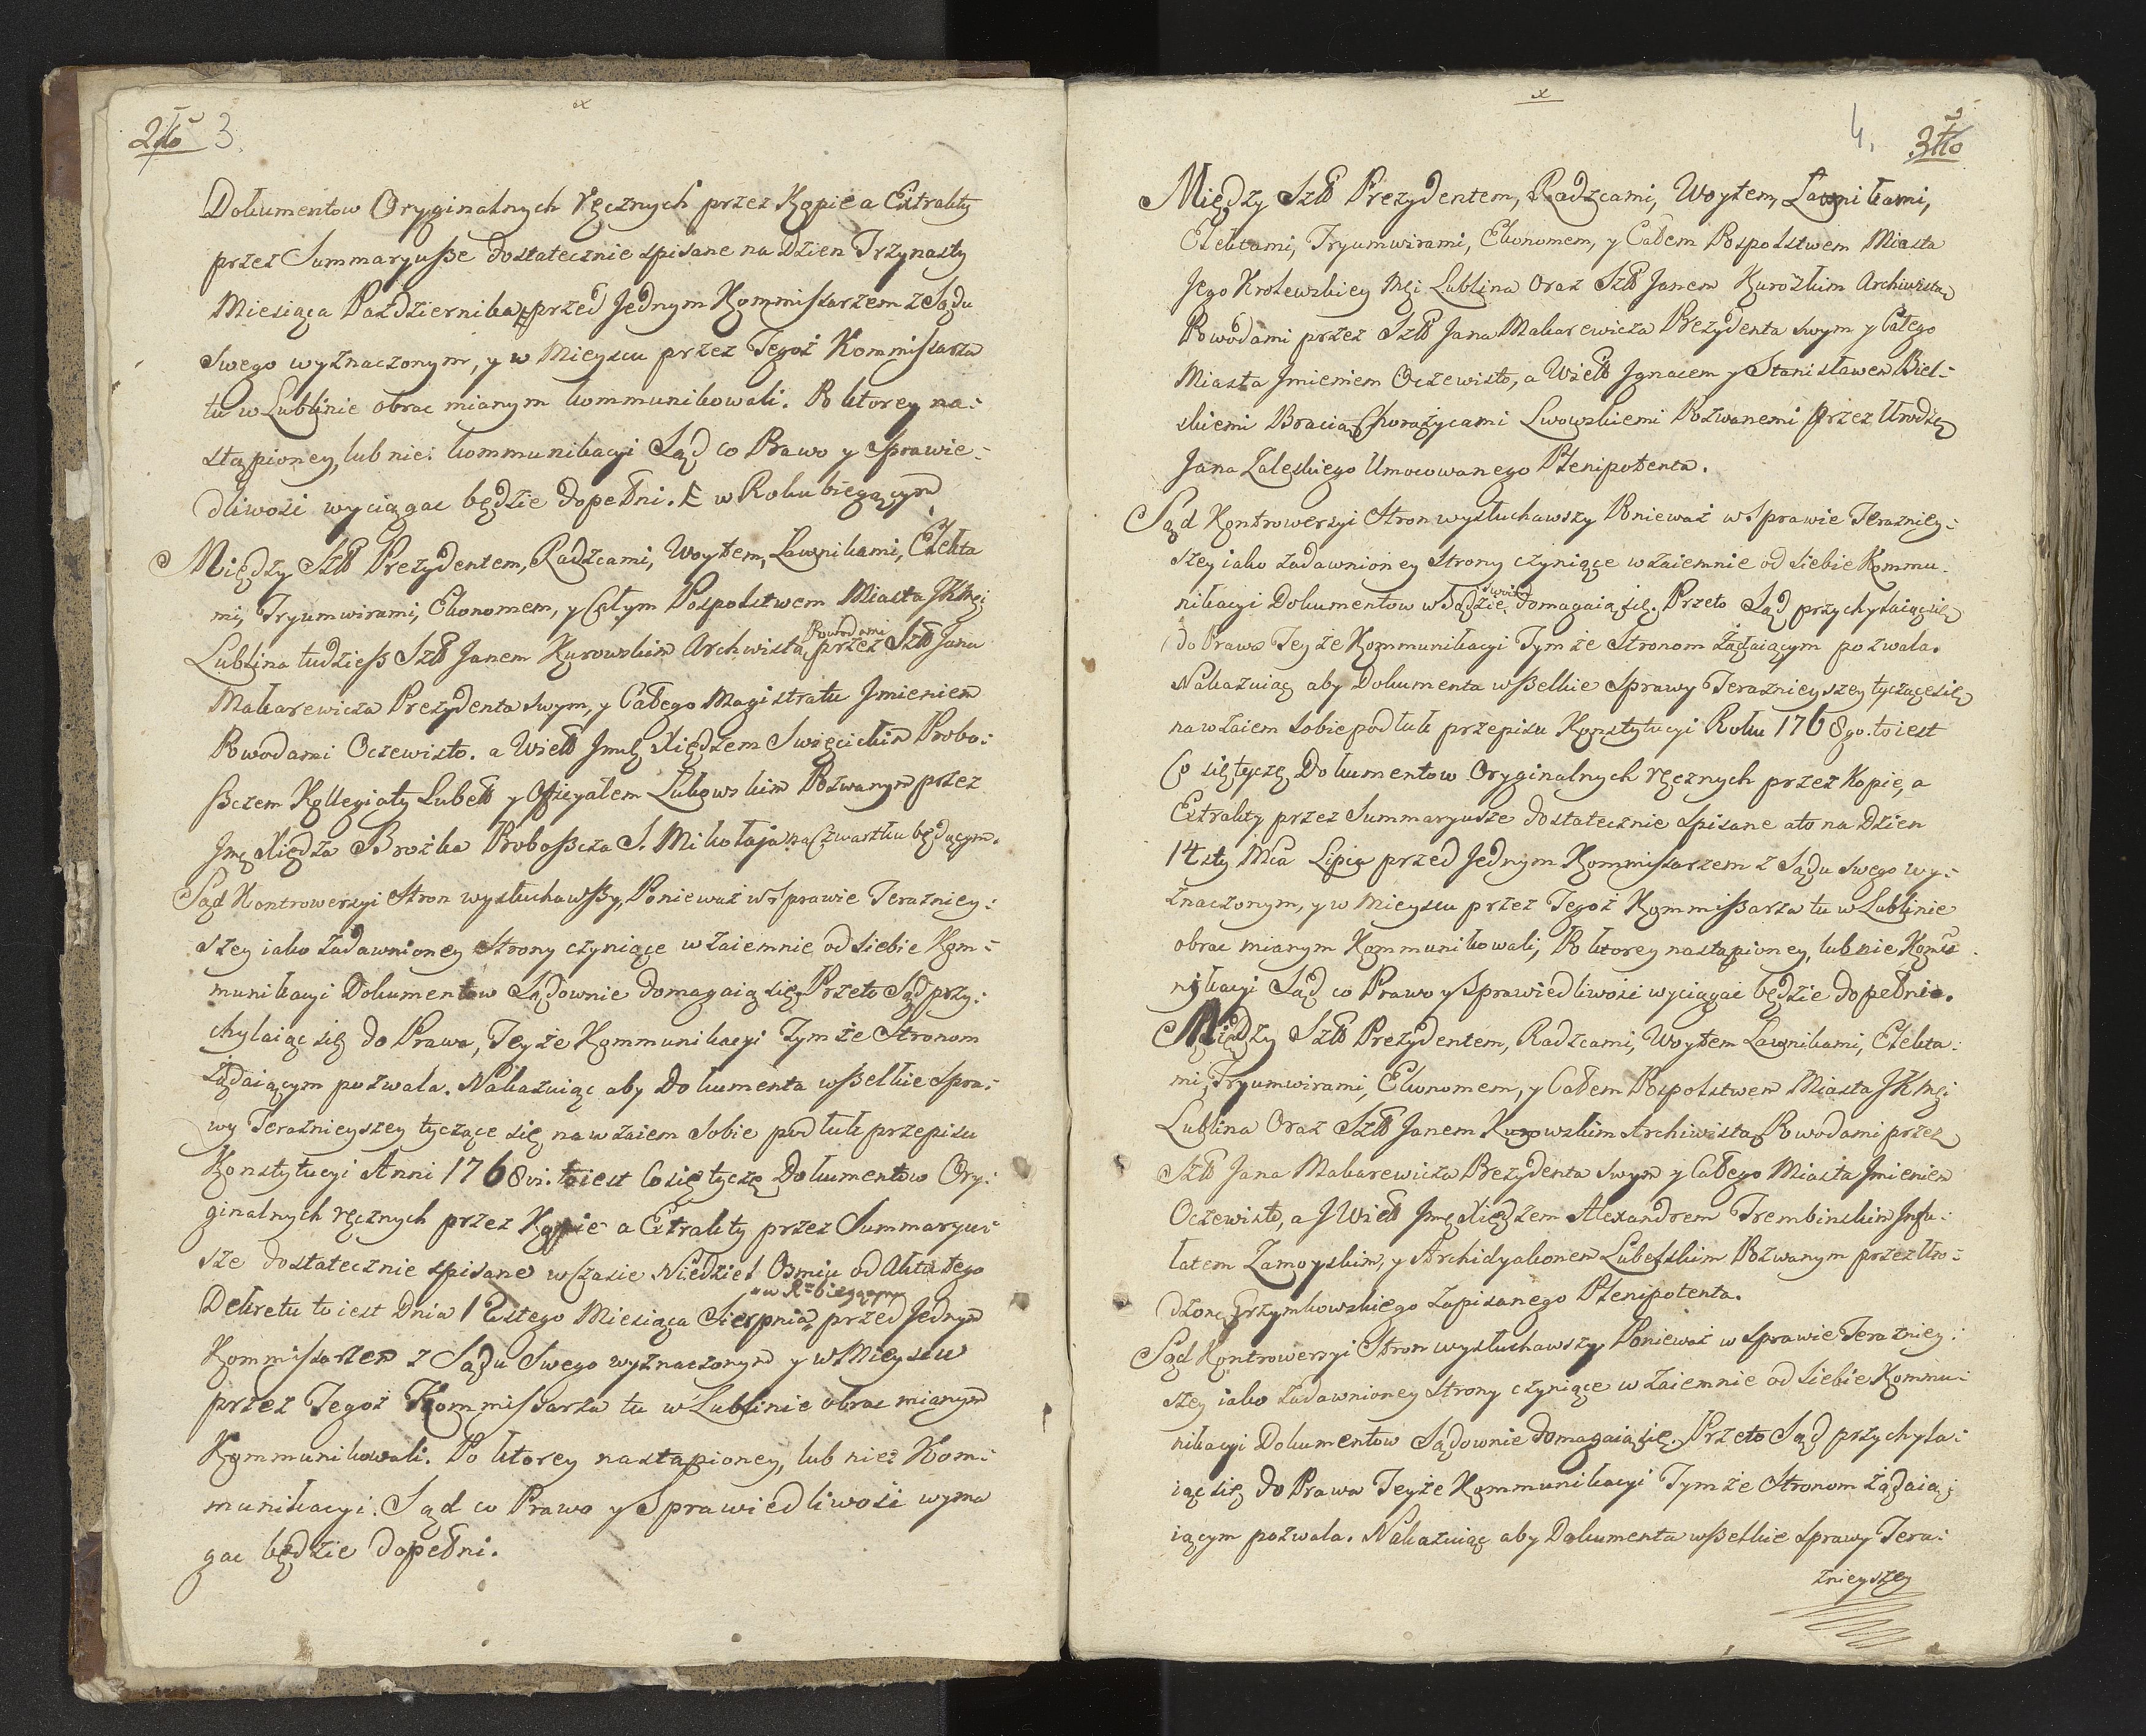 2do 3.
Dokumentow Oryginalnych ręcznych przez Kopie a Extrakty
przez Summaryuße dostatecznie spisane na Dzien Trzynasty
Miesiąca Pazdziernika przed Jednym Kommissarzem z Sądu
Swego wyznaczonym, y w Mieyscu przez Tegoż Kommissarza
tu w Lublinie obrac mianym kommunikowali. Po ktorey na:
stąpioney, lub nie: kommunikacyi Sąd co Prawo y Sprawie:
dliwości wyciągac będzie dopełni. w Roku biegącym
Między Szltt Prezydentem, Radzcami, Woytem, Ławnikami, Elekta
mi, Tryumwirami, Ekonomem, y Całym Pospolstwem Miasta JKMci
Lublina tudzieß Szltt Janem Kurowskim Archwistą Powodami przez Szltt Jana
Makarewicza Prezydenta swym, y Całego Magistratu Jmieniem
Powodami Oczewisto. a Wielt Jmcią Xiędzem Swięcickim Probo:
ßczem Kollegiaty Lubelt y Oficyałem Lukowskim Pozwanym przez
Jmc Xiędza Brożka Proboßcza S. Mikołaja na Czwartku będącym.
Sąd Kontrowersyi Stron wysłuchawßy, Ponieważ w Sprawie Terazniey:
szey iako zadawnioney Strony czyniące wzaiemnie od siebie Kom:
munikacyi Dokumentow Sądownie domagaią się. Przeto Sąd przy:
chylaiąc się do Prawa, Teyże Kommunikacyi Tymże Stronom
żądaiącym pozwala. Nakazuiąc aby Dokumenta wßelkie Spra:
wy Teraznieyszey tyczące się nawzaiem Sobie pod łuk przepisu
Konstytucyi Anni 1768vi. to iest Co się tyczę Dokumentow Ory:
ginalnych ręcznych przez Kopie a Extrakty przez Summaryu:
sze dostatecznie spisane w czasie Niedziel Osmiu od Aktu tego
Dekretu to iest Dnia 12stego Miesiąca Sierpnia w Rku biegącym przed Jednym
Kommissarzem z Sądu Swego wyznaczonym y w Mieyscu
przez Tegoż Kommissarza tu w Lublinie obrac mianym
Kommunikowali. Po ktorey nastąpioney, lub nie: Kom:
munikacyi. Sąd co Prawo y Sprawiedliwości wyma
gac będzie dopełni.
4. 3tio
Między Szltt Prezydentem, Radzcami, Woytem, Ławnikami,
Elektami, Tryumwirami, Ekonomem, y Całem Pospolstwem Miasta
Jego Krolewskiey Mci Lublina Oraz Szltt Janem Kurozkim Archiwistą
Powodami przez Szltt Jana Makarewicza Prezydenta swym y Całego
Miasta Jmieniem Oczewisto, a Wielt Jgnacem y Stanisławem Biel:
skiemi Bracią Chorążycami Lwowskiemi Pozwanemi przez Urodzę
Jana Zaleskiego Umocowanego Plenipotenta.
Sąd Kontrowersyi Stron wysłuchawszy Ponieważ w Sprawie Terazniey:
szey iako zadawnioney Strony czyniące wzaiemnie od siebie Kommu:
nikacyi Dokumentow w Sądzie domagaią się. Przeto Sąd przychylaiąc się
do Prawa Teyże Kommunikacyi Tymże Stronom żądaiącym pozwala.
Nakazuiąc aby Dokumenta wßelkie Sprawy Teraznieyszey tyczące się
nawzaiem sobie pod łuk przepisu Konstytucyi Roku 1768go. to iest
Co się tyczę Dokumentow Oryginalnych ręcznych przez Kopie, a
Extrakty przez Summaryusze dostatecznie spisane ato na Dzien
14sty Mca Lipca przed Jednym Kommissarzem z Sądu Swego wy:
znaczonym, y w Mieyscu przez Tegoż Kommißarza tu w Lublinie
obrac mianym Kommunikowali, Po ktorey nastąpioney, lub nie Komu
nikacyi Sąd co Prawo y Sprawiedliwości wyciągac będzie dopełni.
Między Szltt Prezydentem, Radzcami, Woytem Ławnikami, Elekta:
mi, Tryumwirami, Ekonomem, y Całem Pospolstwem Miasta JKMci
Lublina Oraz Szltt Janem Kurowskim Archiwistą Powodami przez
Szltt Jana Makarewicza Prezydenta swym y Całego Miasta Jmieniem
Oczewisto, a JWielt Jmc Xiędzem Alexandrem Trembinskim Jnfu:
łatem Zamoyskim, y Archidyakonem Lubelskim Pozwanym przez Uro:
dzonę Grzymkowskiego Zapisanego Plenipotenta.
Sąd Kontrowersyi Stron wysłuchawszy Ponieważ w Sprawie Terazniey:
szey iako zadawnioney Strony czyniące wzaiemnie od siebie Kommu:
nikacyi Dokumentow Sądownie domagaią się. Przeto Sąd przychyla:
iąc się do Prawa Teyże Kommunikacyi Tymże Stronom żądaią:
iącym pozwala. Nakazuiąc aby Dokumenta wßelkie Sprawy Tera:
znieyszey